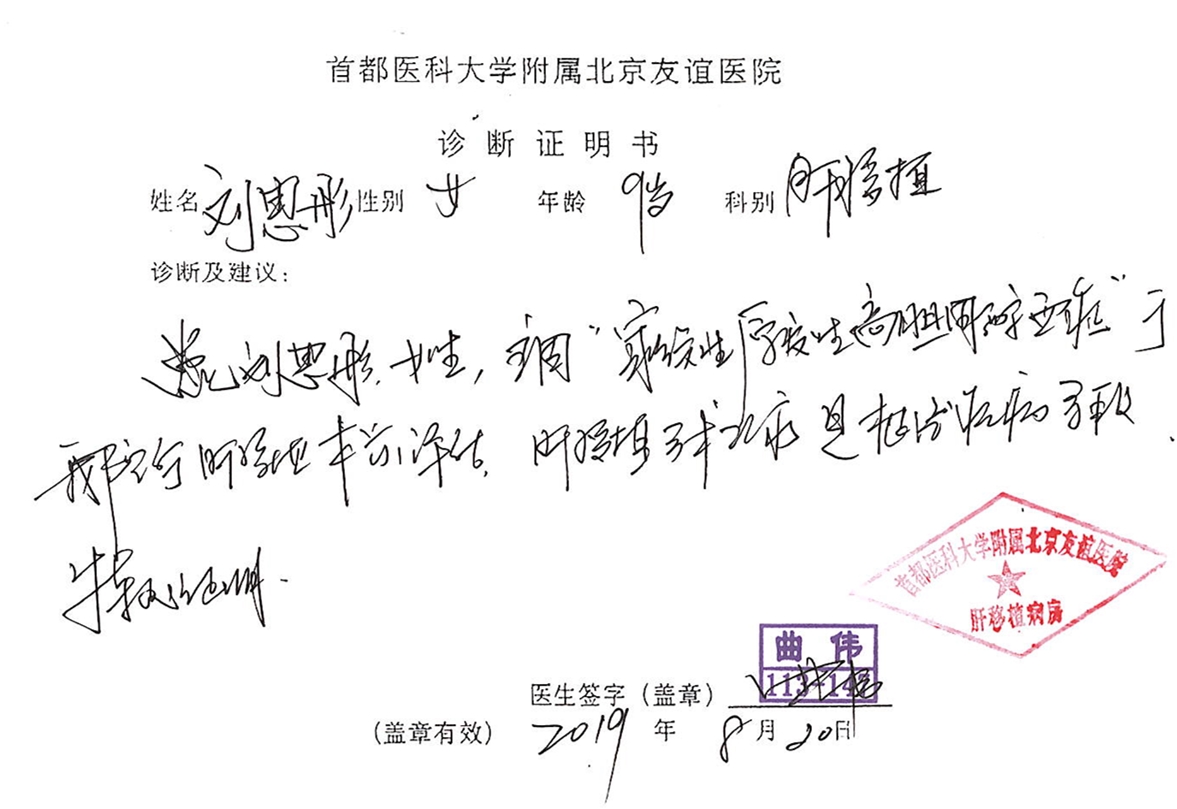 首都医科大学附属北京友谊医院
诊断证明书
姓名 刘思彤 性别 女 年龄 9岁 科别 肝移植
诊断及建议：
患儿刘思彤，女性，主因“家族性 性高胆固醇血症”于
我院行肝移植术前评估，肝移植手术 是 治疗 病 手段.
特此证明.
首都医科大学附属北京友谊医院
肝移植病房
曲伟
医生签字（盖章）
（盖章有效） 2019 年 8 月 20 日